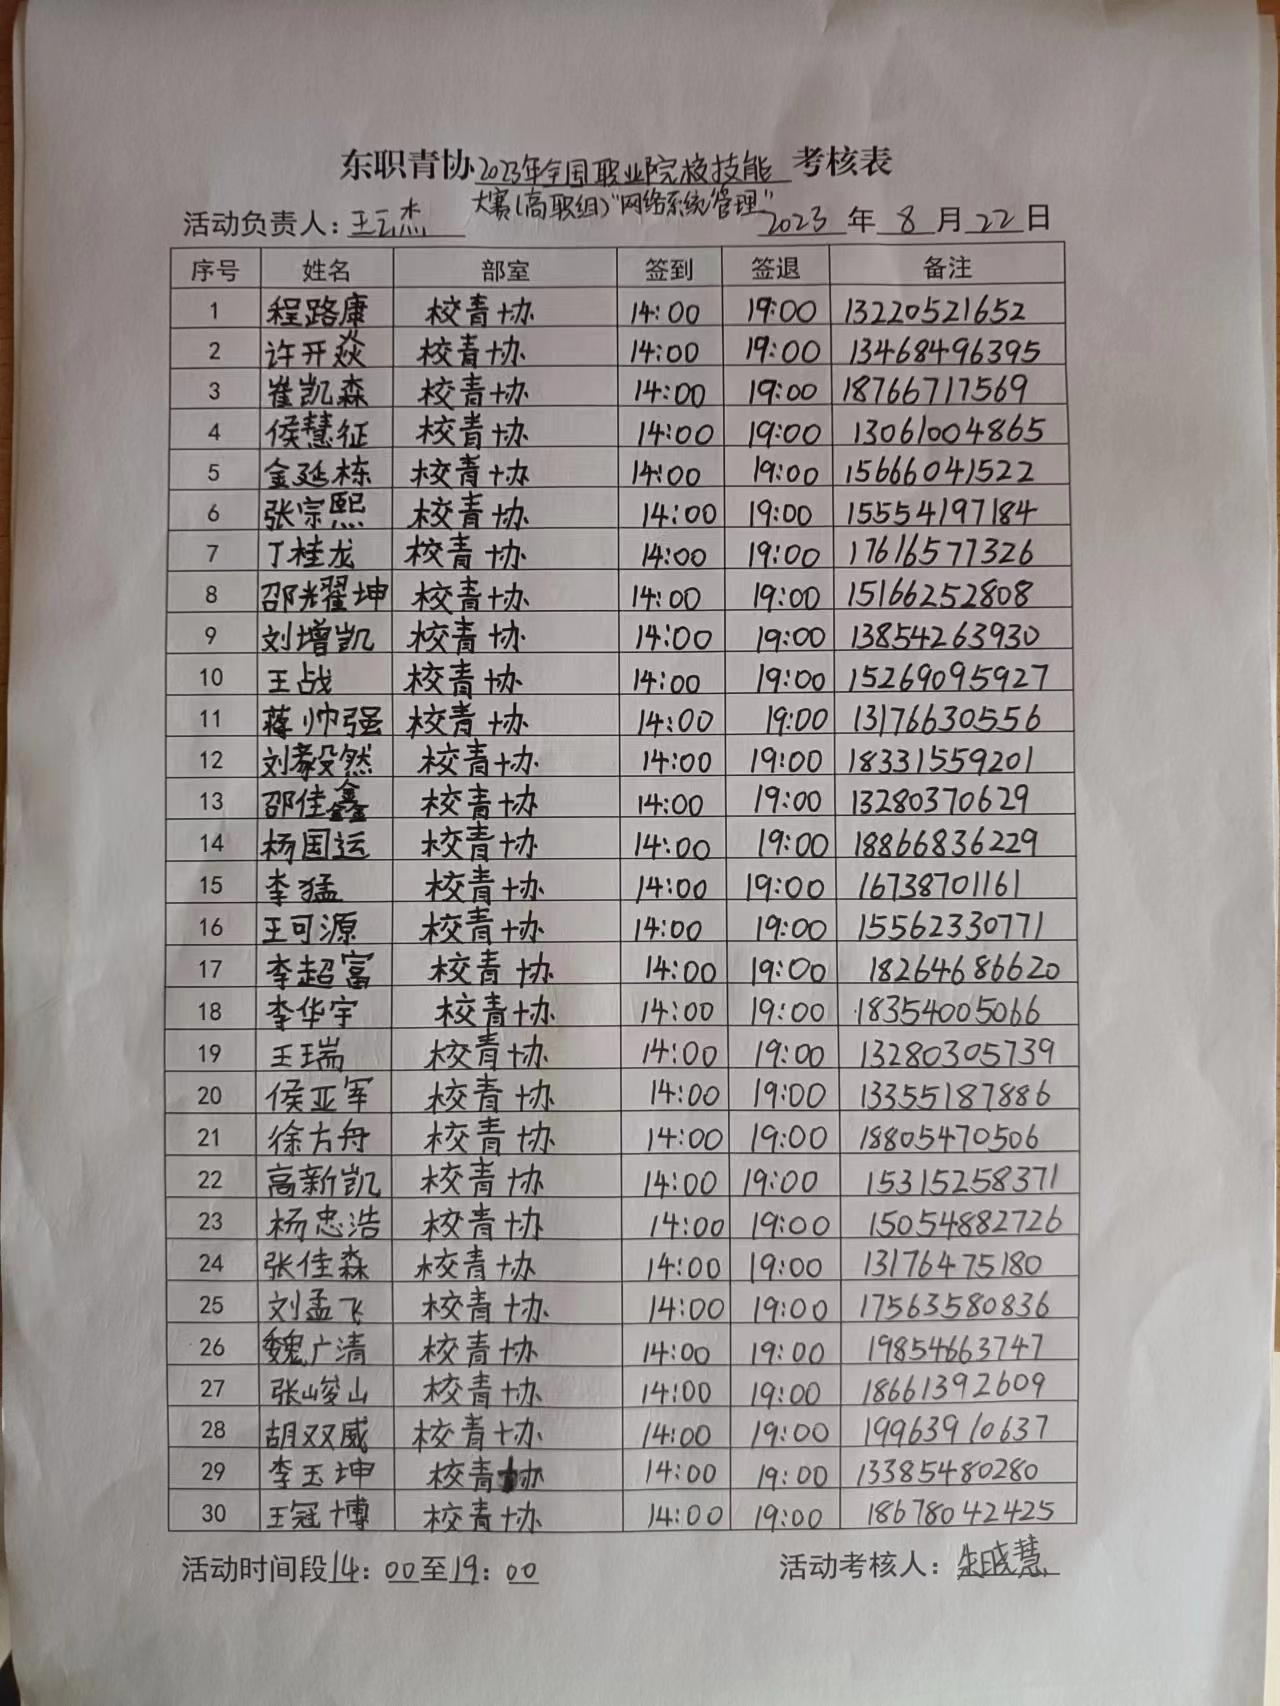 东职青协2023年全国职业院校技能考核表
大赛(高职组)"网络系统管理"
活动负责人：王云杰 2023年8月22日
序号 姓名 部室 签到 签退 备注
1 程路康 校青协 14:00 19:00 13220521652
2 许开焱 校青协 14:00 19:00 13468496395
3 崔凯森 校青协 14:00 19:00 18766717569
4 侯慧征 校青协 14:00 19:00 13061004865
5 金延栋 校青协 14:00 19:00 15666041522
6 张宗熙 校青协 14:00 19:00 15554197184
7 丁桂龙 校青协 14:00 19:00 17616577326
8 邵耀坤 校青协 14:00 19:00 15166252808
9 刘增凯 校青协 14:00 19:00 13854263930
10 王战 校青协 14:00 19:00 15269095927
11 蒋帅强 校青协 14:00 19:00 13176630556
12 刘毅然 校青协 14:00 19:00 18331559201
13 邵佳鑫 校青协 14:00 19:00 13280370629
14 杨国运 校青协 14:00 19:00 18866836229
15 李猛 校青协 14:00 19:00 16738701161
16 王可源 校青协 14:00 19:00 15562330771
17 李超富 校青协 14:00 19:00 18264686620
18 李华宇 校青协 14:00 19:00 18354005066
19 王瑞 校青协 14:00 19:00 13280305739
20 侯亚军 校青协 14:00 19:00 13355187886
21 徐方舟 校青协 14:00 19:00 18805470506
22 高新凯 校青协 14:00 19:00 15315258371
23 杨忠浩 校青协 14:00 19:00 15054882726
24 张佳森 校青协 14:00 19:00 13176475180
25 刘孟飞 校青协 14:00 19:00 17563580836
26 魏广清 校青协 14:00 19:00 19854663747
27 张峻山 校青协 14:00 19:00 18661392609
28 胡双威 校青协 14:00 19:00 19963910637
29 李玉坤 校青协 14:00 19:00 13385480280
30 王冠博 校青协 14:00 19:00 18678042425
活动时间段14：00至19：00 活动考核人：朱晓慧